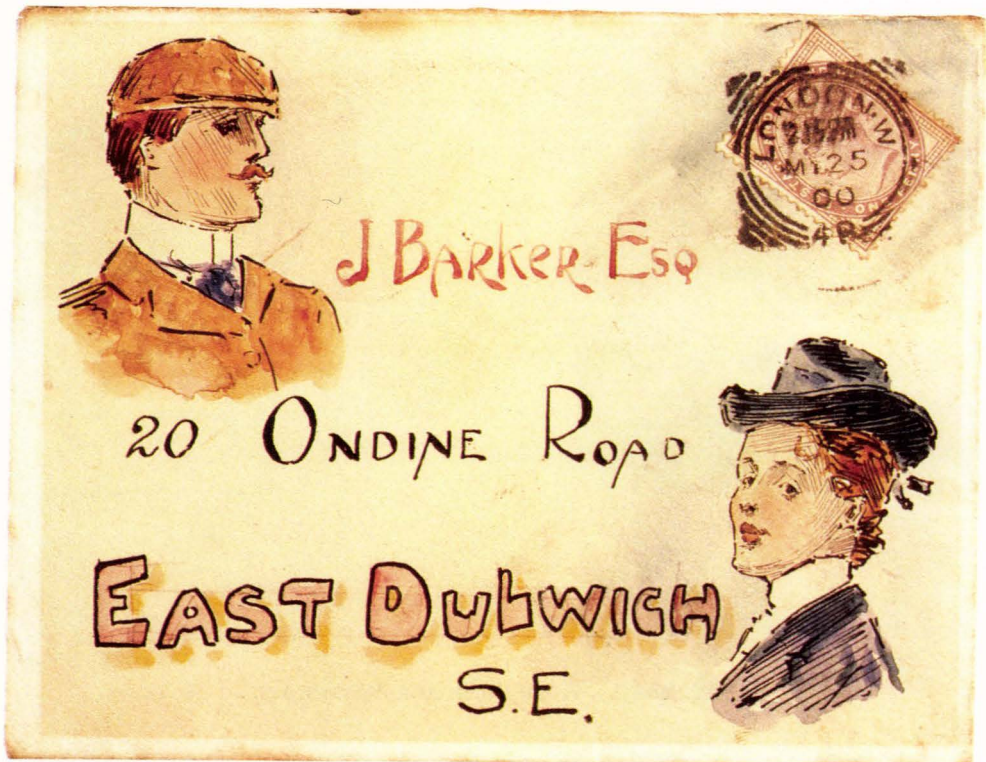 LONDON.W
MY 25
00
J BARKER ESQ
20 ONDINE ROAD
EAST DULWICH
S.E.